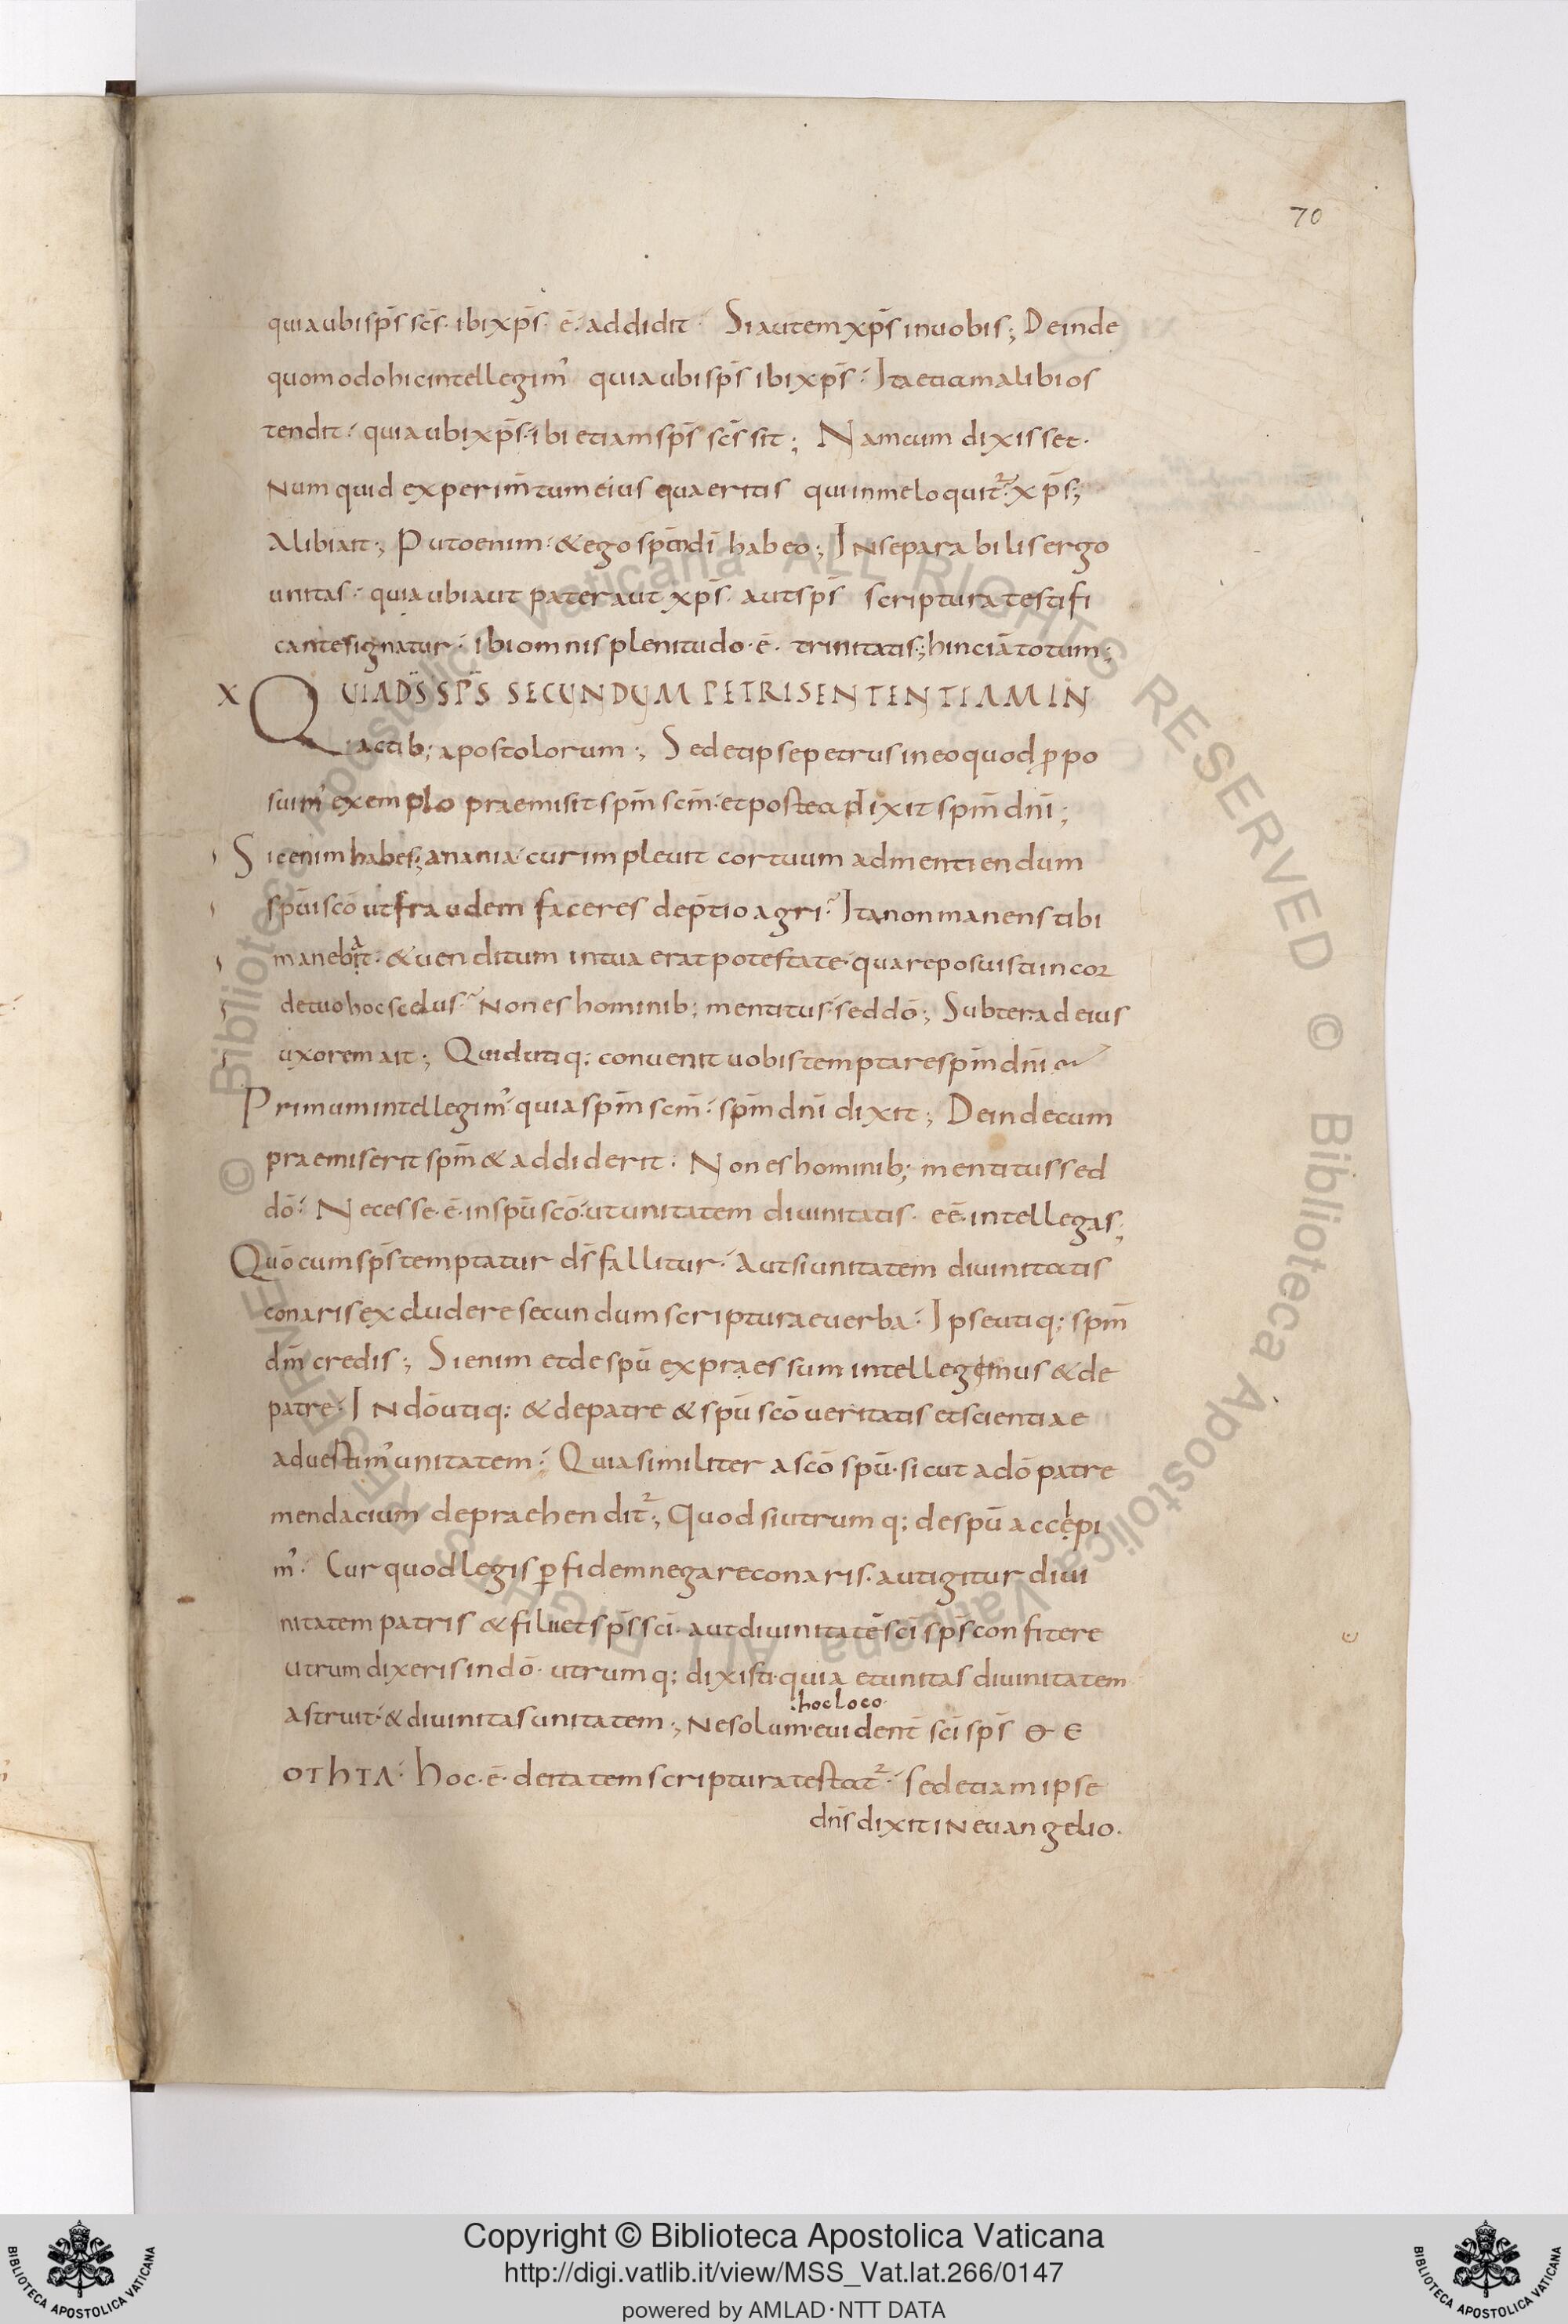 70
quia ubi sp̄s sc̄s· ibi xp̄s· ē· addidit· Si autem xp̄s in uobis; Deinde
quomodo hic intellegim᾽ quia ubi sp̄s ibi xp̄s· Ita etiam alibi os
tendit· quia ubi xp̄s· ibi etiam sp̄s sc̄s sit; Nam cum dixisset·
Num quid experim̄tum eius quaeritis qui in me loquit᷑· xp̄s;
Alibi ait; Puto enim· & ego sp̄m dī habeo; Inseparabilis ergo
unitas· quia ubi aut pater aut xp̄s· aut sp̄s scriptura testifi
cante signatur· ibi omnis plenitudo·ē· trinitatis; hinc iā totum;
X QUIA DS̄ SP̄S SECUNDUM PETRI SENTENTIAM IN
actib; apostolorum; Sed et ipse petrus in eo quod ꝓpo
suim᾽ exemplo praemisit sp̄m sc̄m· et postea dixit sp̄m dn̄i;
Sic enim habes; anania· cur impleuit cor tuum ad mentiendum
sp̄ui scō ut fraudem faceres de p̄tio agri· Ita non manens tibi
manebat· & uenditum in tua erat potestate· quare posuisti in cor
de tuo hoc scelus· Non es hominib; mentitus· sed dō; Subter ad eius
uxorem ait; Quid utiq; conuenit uobis temptare sp̄m dn̄i
Primum intellegim᾽ quia sp̄m sc̄m· sp̄m dn̄i dixit; Deinde cum
praemiserit sp̄m & addiderit· Non es hominib; mentitus sed
dō· Necesse·ē· in sp̄u scō· ut unitatem diuinitatis· eē· intellegas;
Quō cum sp̄s temptatur ds̄ fallitur· Aut si unitatem diuinitatis
conaris excludere secundum scripturae uerba· Ipse utiq; sp̄m
dm̄ credis; Si enim et de sp̄u expraessum intellegimus & de
patre· In dō utiq; & de patre & sp̄u scō ueritatis et scientiae
aduertim᾽ unitatem· Quia similiter a scō sp̄u· sicut a dō patre
mendacium depraehendit᷑; Quod si utrumq; de sp̄u accepi
m᾽· Cur quod legis ꝑfidem negare conaris· aut igitur diui
nitatem patris & filii et sp̄s sc̄i· aut diuinitatē sc̄i sp̄s confitere
utrum dixeris in dō· utrumq; dixisti· quia et unitas diuinitatem
·hoc loco·
astruit· & diuinitas unitatem; Ne solum· euident̄ sc̄i sp̄s Θ Ε
ΟΤhΤΑ· hoc·ē· deitatem scriptura testat᷑· sed etiam ipse
dn̄s dixit in euangelio·
© Biblioteca Apostolica Vaticana ALL RIGHTS RESERVED © Biblioteca Apostolica Vaticana ALL RIGHTS RESERVED
Copyright © Biblioteca Apostolica Vaticana
http://digi.vatlib.it/view/MSS_Vat.lat.266/0147
powered by AMLAD·NTT DATA
BIBLIOTECA APOSTOLICA VATICANA
BIBLIOTECA APOSTOLICA VATICANA